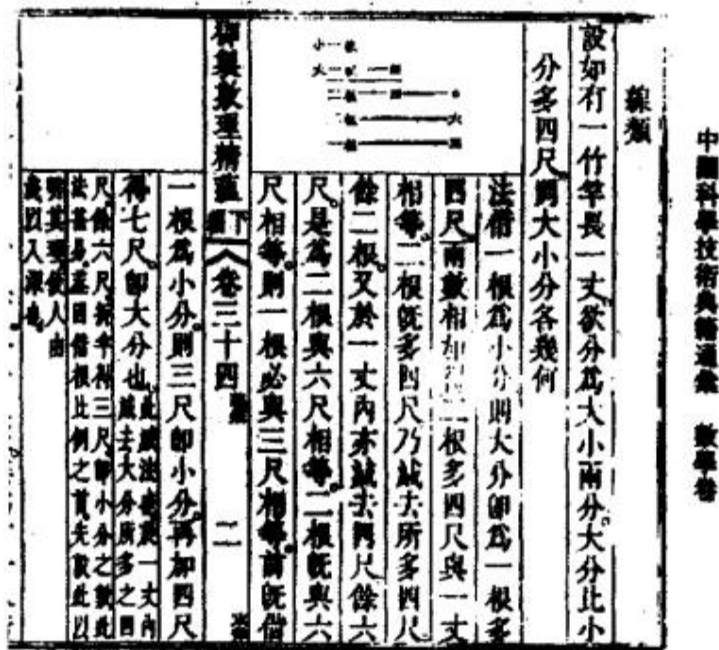 中國科學技術典籍通彙 數學卷
線類
設如有一竹竿長一丈欲分爲大小兩分大分比小
分多四尺問大小分各幾何
法借一根爲小分則大分卽爲一根多
四尺兩數相加得二根多四尺與一丈
相等二根旣多四尺乃減去所多四尺
餘二根又於一丈內亦減去四尺餘六
尺是爲二根與六尺相等二根旣與六
尺相等則一根必與三尺相等前旣借
御製數理精蘊 下編 卷三十四
二
一根爲小分則三尺卽小分再加四尺
得七尺卽大分也
一丈內
減去大分所多之四
尺餘六尺折半得三尺卽小分之數此
法甚易蓋因借根比例之首先設此以
明其理使人由
淺以入深也